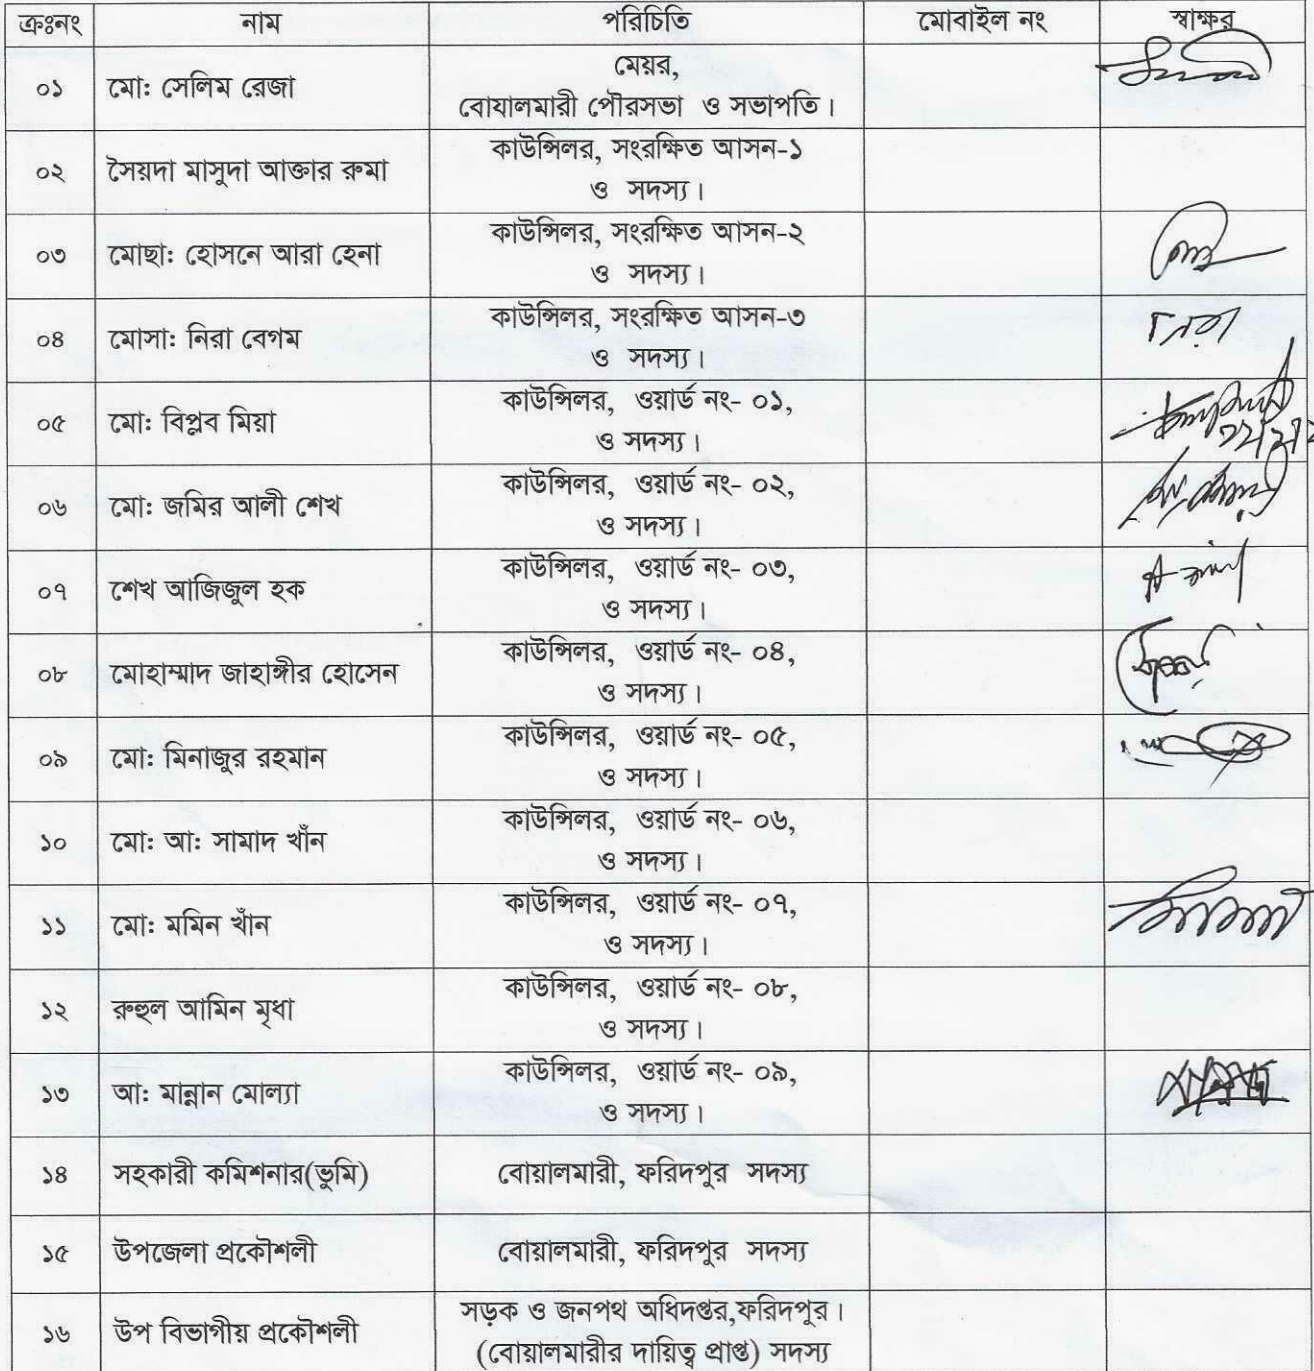 ক্রঃনং নাম পরিচিতি মোবাইল নং স্বাক্ষর
০১ মো: সেলিম রেজা মেয়র,
বোযালমারী পৌরসভা ও সভাপতি।
০২ সৈয়দা মাসুদা আক্তার রুমা কাউন্সিলর, সংরক্ষিত আসন-১
ও সদস্য।
০৩ মোছা: হোসনে আরা হেনা কাউন্সিলর, সংরক্ষিত আসন-২
ও সদস্য।
০৪ মোসা: নিরা বেগম কাউন্সিলর, সংরক্ষিত আসন-৩
ও সদস্য। নিরা
০৫ মো: বিপ্লব মিয়া কাউন্সিলর, ওয়ার্ড নং- ০১,
ও সদস্য।
০৬ মো: জমির আলী শেখ কাউন্সিলর, ওয়ার্ড নং- ০২,
ও সদস্য।
০৭ শেখ আজিজুল হক কাউন্সিলর, ওয়ার্ড নং- ০৩,
ও সদস্য।
০৮ মোহাম্মাদ জাহাঙ্গীর হোসেন কাউন্সিলর, ওয়ার্ড নং- ০৪,
ও সদস্য।
০৯ মো: মিনাজুর রহমান কাউন্সিলর, ওয়ার্ড নং- ০৫,
ও সদস্য।
১০ মো: আ: সামাদ খাঁন কাউন্সিলর, ওয়ার্ড নং- ০৬,
ও সদস্য।
১১ মো: মমিন খাঁন কাউন্সিলর, ওয়ার্ড নং- ০৭,
ও সদস্য।
১২ রুহুল আমিন মৃধা কাউন্সিলর, ওয়ার্ড নং- ০৮,
ও সদস্য।
১৩ আ: মান্নান মোল্যা কাউন্সিলর, ওয়ার্ড নং- ০৯,
ও সদস্য।
১৪ সহকারী কমিশনার(ভুমি) বোয়ালমারী, ফরিদপুর সদস্য
১৫ উপজেলা প্রকৌশলী বোয়ালমারী, ফরিদপুর সদস্য
১৬ উপ বিভাগীয় প্রকৌশলী সড়ক ও জনপথ অধিদপ্তর,ফরিদপুর।
(বোয়ালমারীর দায়িত্ব প্রাপ্ত) সদস্য